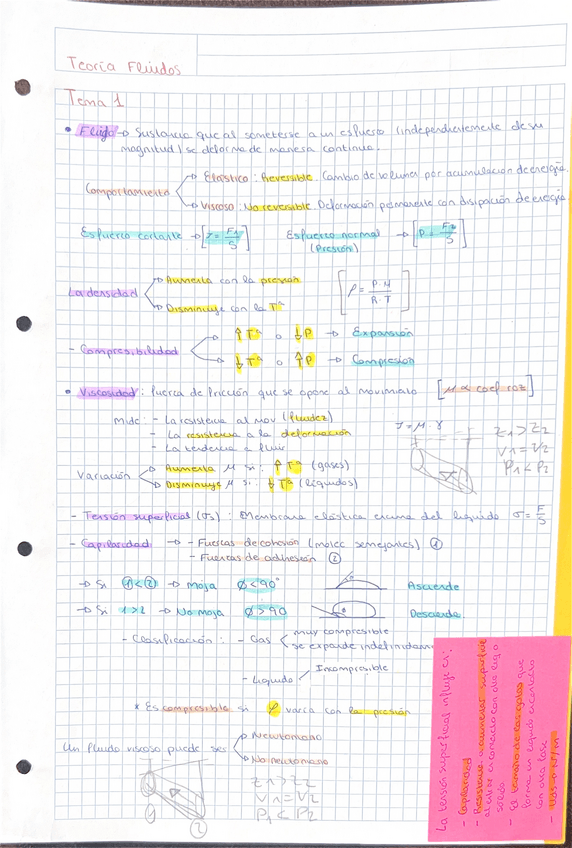 Teoría Fluidos
Tema 1
• Fluido → Sustancia que al someterse a un esfuerzo (independientemente de su
magnitud) se deforma de manera continua.
Comportamiento
Elástico: Reversible. Cambio de volumen por acumulación de energía.
Viscoso: No reversible. Deformación permanente con disipación de energía.
Esfuerzo cortante → [τ = F/S]
Esfuerzo normal → [P = F/S]
(Presión)
La densidad
Aumenta con la presión
Disminuye con la Tª
[ρ = P·M / R·T]
- Compresibilidad
↑Tª o ↓P → Expansión
↓Tª o ↑P → Compresión
• Viscosidad: Fuerza de fricción que se opone al movimiento [μ ∝ coef roz]
Mide: - La resistencia al mov (fluidez)
- La resistencia a la deformación
- La tendencia a fluir
Variación
Aumenta μ si: ↑Tª (gases)
Disminuye μ si: ↓Tª (líquidos)
z1 > z2
v1 = v2
P1 < P2
- Tensión superficial (σs): Membrana elástica encima del líquido σ = F/S
- Capilaridad → - Fuerzas de cohesión (molec semejantes) ①
- Fuerzas de adhesión ②
→ Si ①<② → Moja Ø<90° Asciende
→ Si 1>2 → No moja Ø>90 Desciende.
- Clasificación: - Gas
muy compresible
se expande indefinidam
- Líquido / Incompresible
* Es compresible si ρ varía con la presión
Un fluido viscoso puede ser
Newtoniano
No newtoniano
z1 > z2
v1 = v2
P1 < P2
① ②
La tensión superficial influye en:
- Capilaridad
- Resistencia a aumentar superficie
al entrar en contacto con otro liq o
sólido
- El tamaño de las gotas que
forma un líquido en contacto
con otra fase